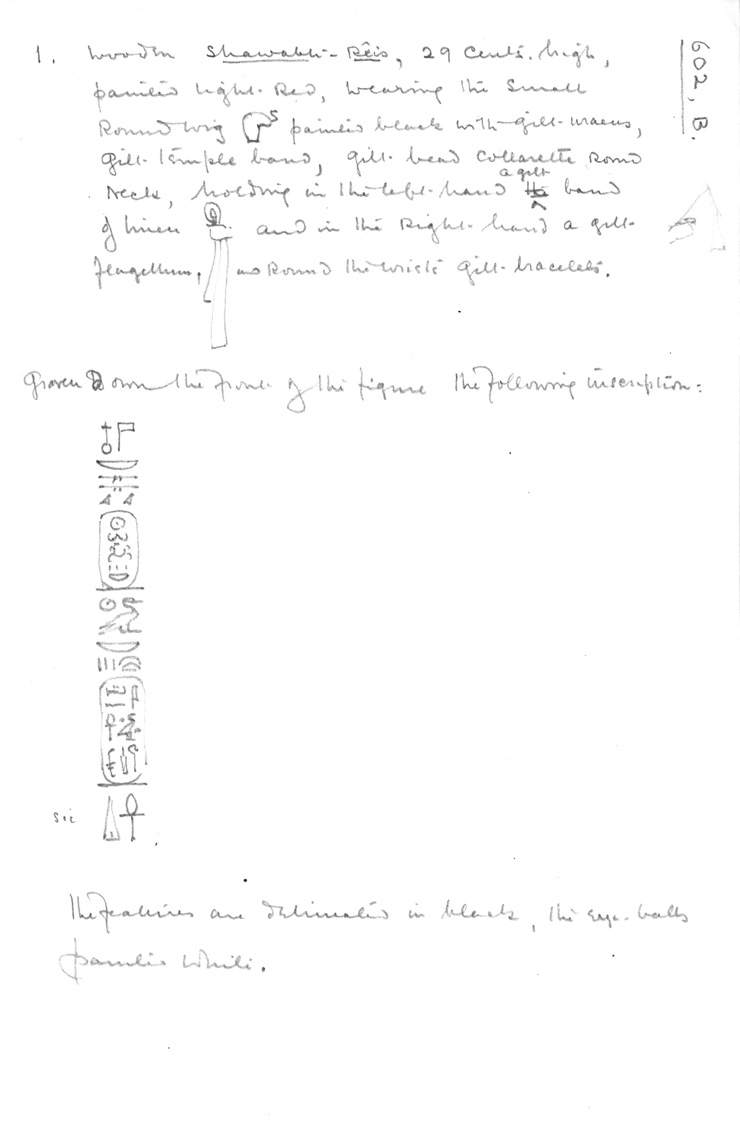 602, B.
1. Wooden Shawabti-Rêis, 29 cents. high,
painted light-Red, wearing the small
Round wig painted black with gilt-uraeus,
gilt-temple band, gilt-bead collarette Round
neck, holding in the left-hand a gilt band
of linen and in the Right-hand a gilt-
flagellum, and Round the wrists gilt-bracelets.
Graven Down the front of the figure the following inscription:
sic
The features are delineated in black, the eye-balls
painted white.